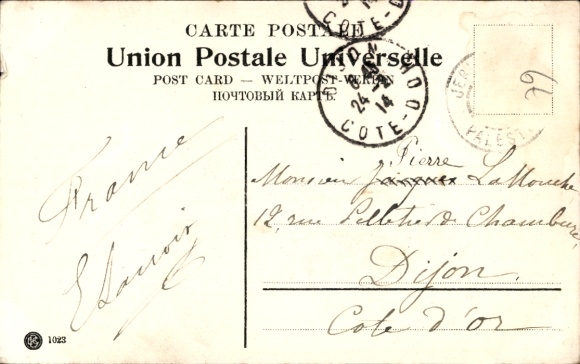 CARTE POSTALE
Union Postale Universelle
POST CARD — WELTPOST-VEREIN
ПОЧТОВЫЙ КАРТЬ
DIJON
24
14
COTE-D'OR
PALEST
79
France
Pierre
Monsieur Jacques LaMouche
12, rue Pelletier de Chambure,
Dijon.
Cote d'Or
1023